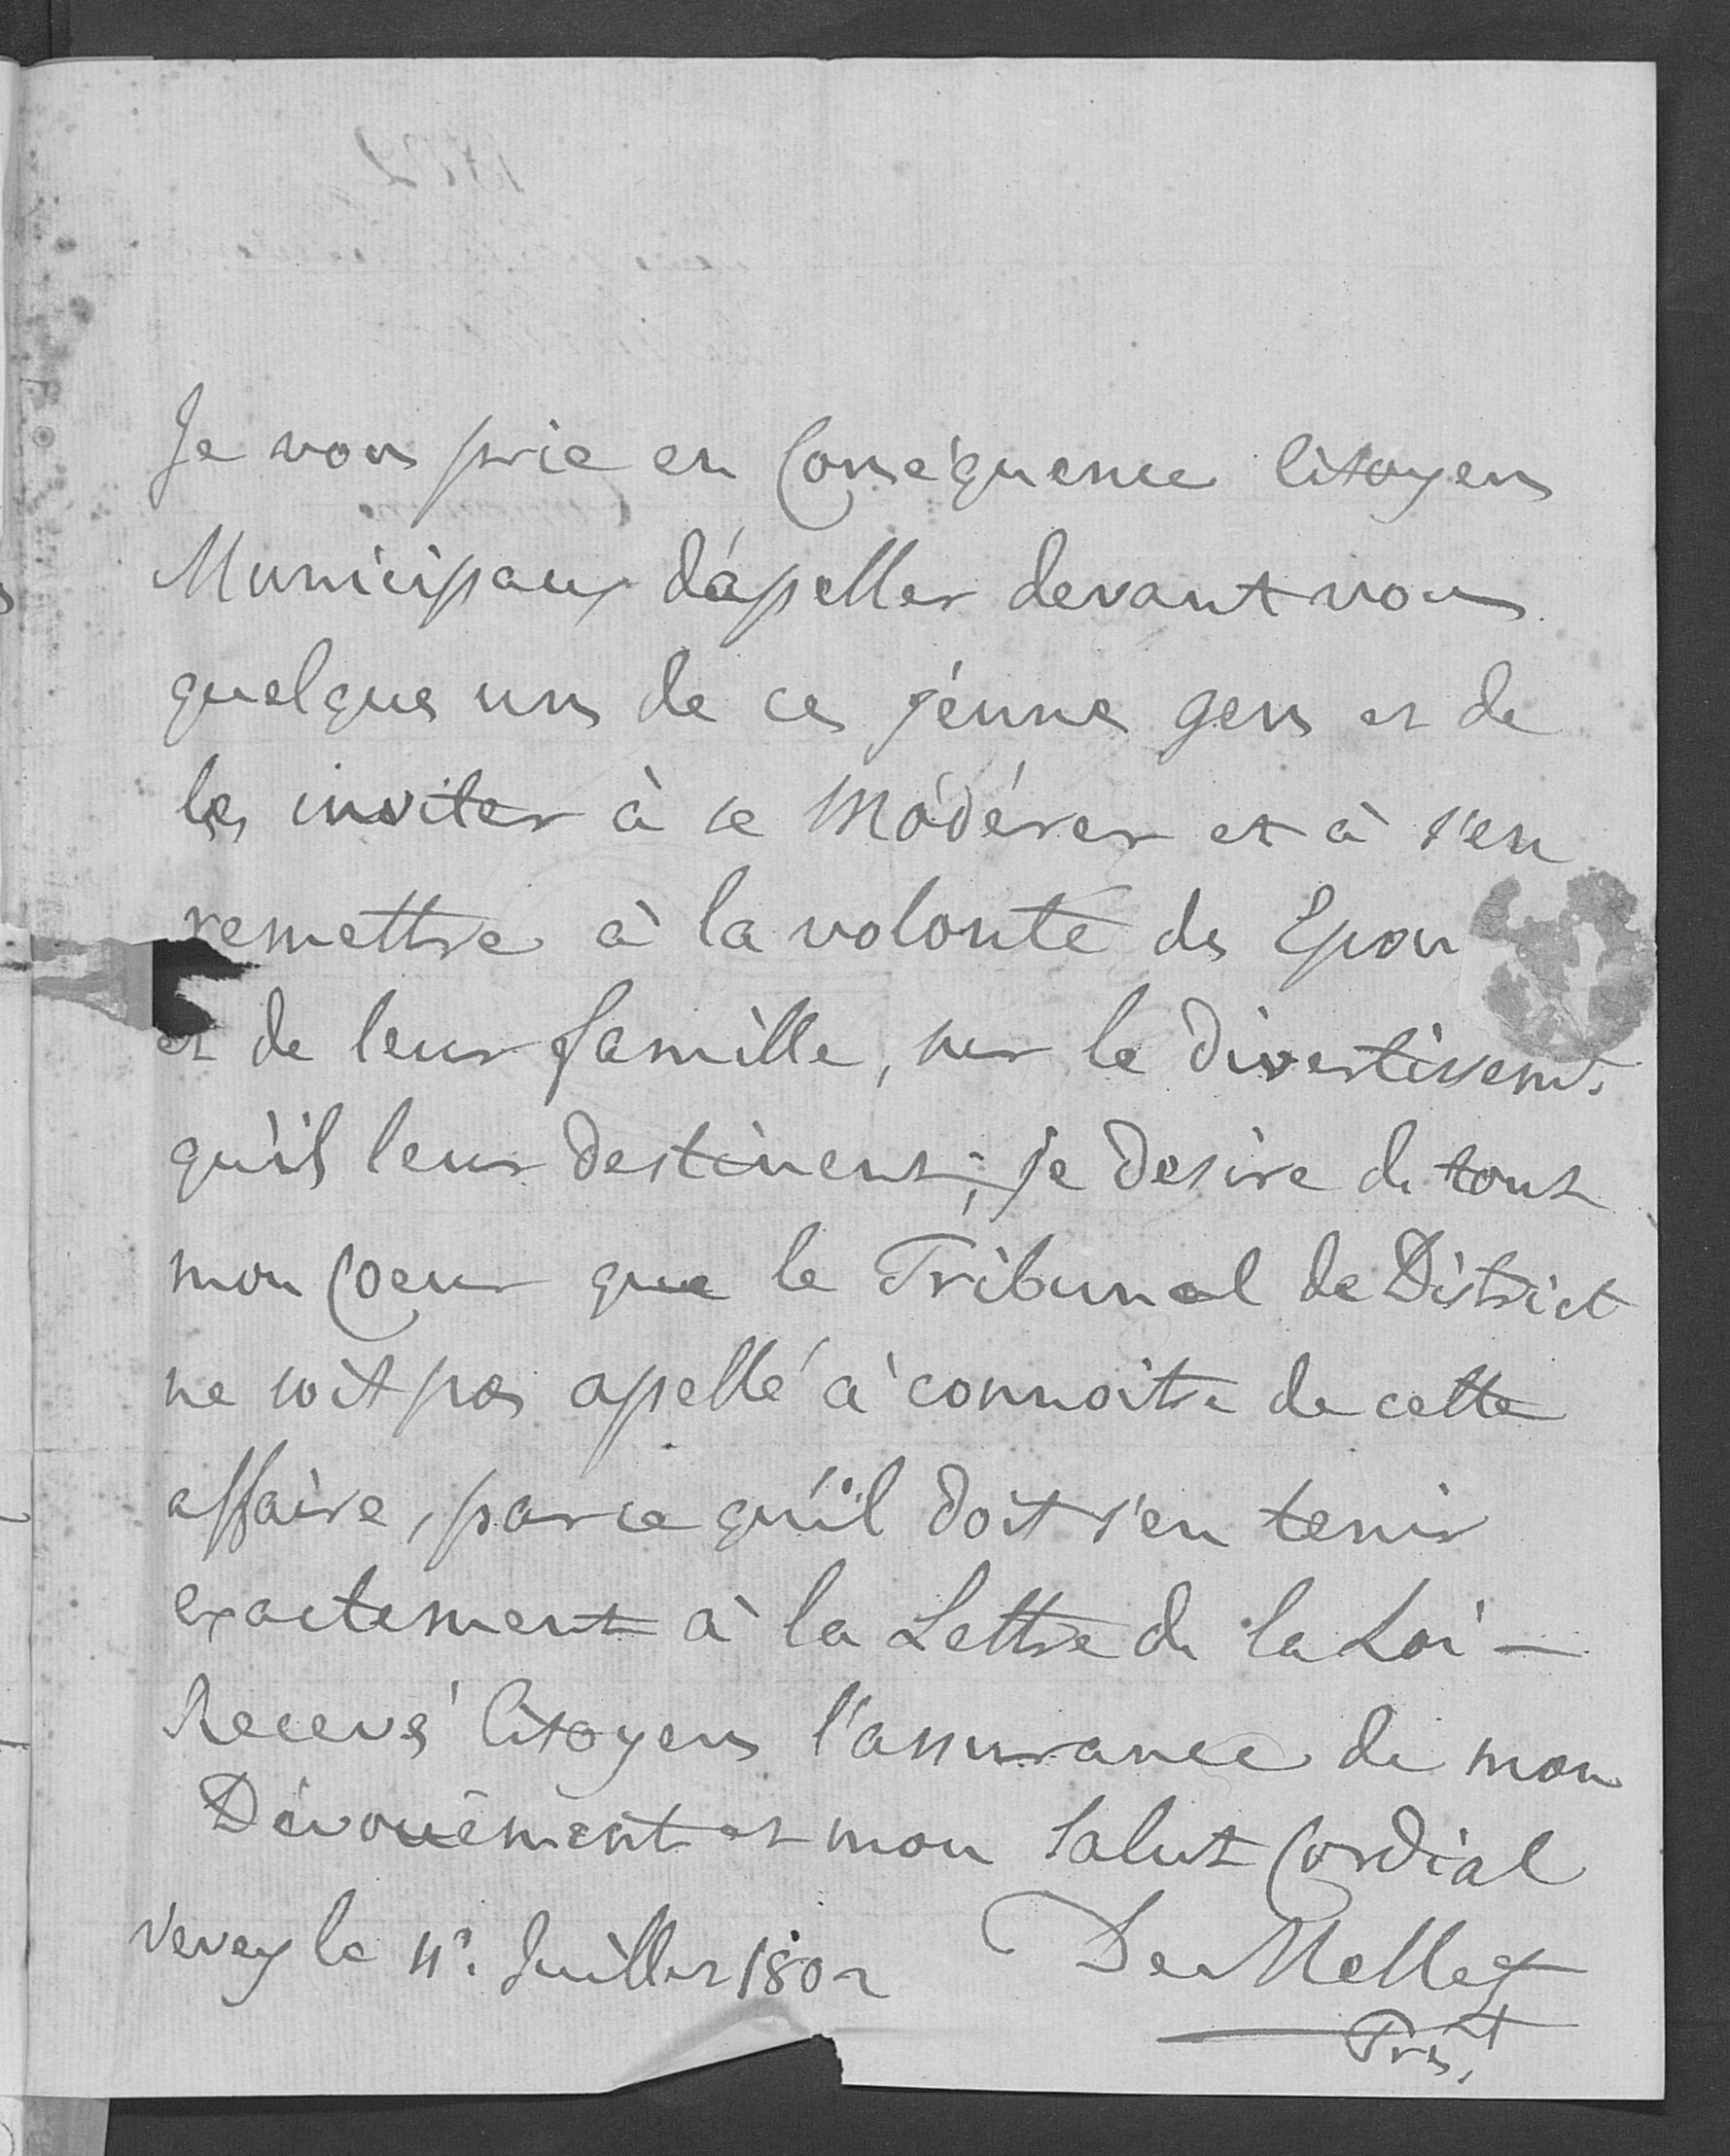 Je vous prie en Conséquence Citoyens
Municipaux d'apeller devant vous
quelques uns de ces jeunes gens et de
les inviter à se Modérer et à s'en
remettre à la volonté des Epou
et de leur famille, sur le divertissemt.
qu'ils leur destinent; je desire de tout
mon Coeur que le Tribunal de District
ne soit pas apellé à connoitre de cette
affaire, parce qu'il doit s'en tenir
exactement à la Lettre de la Loi —
Recevés Citoyens l'assurance de mon
Dévouément et mon Salut Cordial
Vevey le 11e. Juillet 1802 De Mellet
Prést.